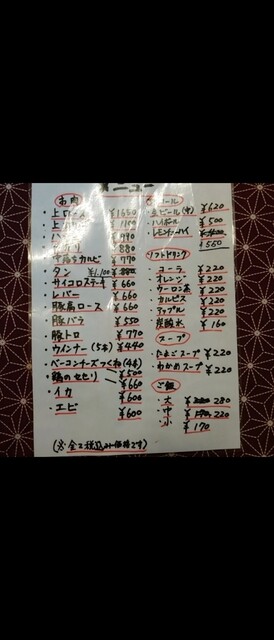 メニュー
お肉
・上ロース ¥1650
880
カルビ ¥770
・タン ¥1,100
・サイコロステーキ ¥660
・レバー ¥660
・豚肩ロース ¥660
・豚バラ ¥550
・豚トロ ¥770
・ウインナー(5本) ¥440
・ベーコンチーズつくね(4本) ¥500
・鶏のセセリ ¥660
・イカ ¥606
・エビ ¥600
(※全て税込み価格です)
・生ビール(中) ¥620
・ハイボール ¥500
・レモンチューハイ
¥550
ソフトドリンク
・コーラ ¥220
・オレンジ ¥220
・ウーロン茶 ¥220
・カルピス ¥220
・アップル ¥220
・炭酸水 ¥160
スープ
・たまごスープ ¥220
・わかめスープ ¥220
ご飯
・大 280
・中 220
・小 ¥170